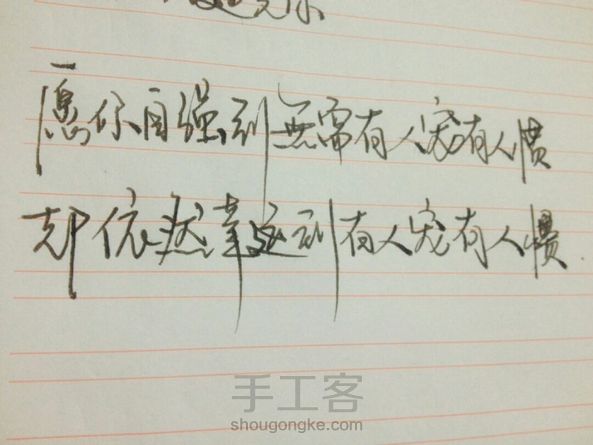 愿你自强到無需有人宠有人惯
却依然幸运到有人宠有人惯
手工客
shougongke.com